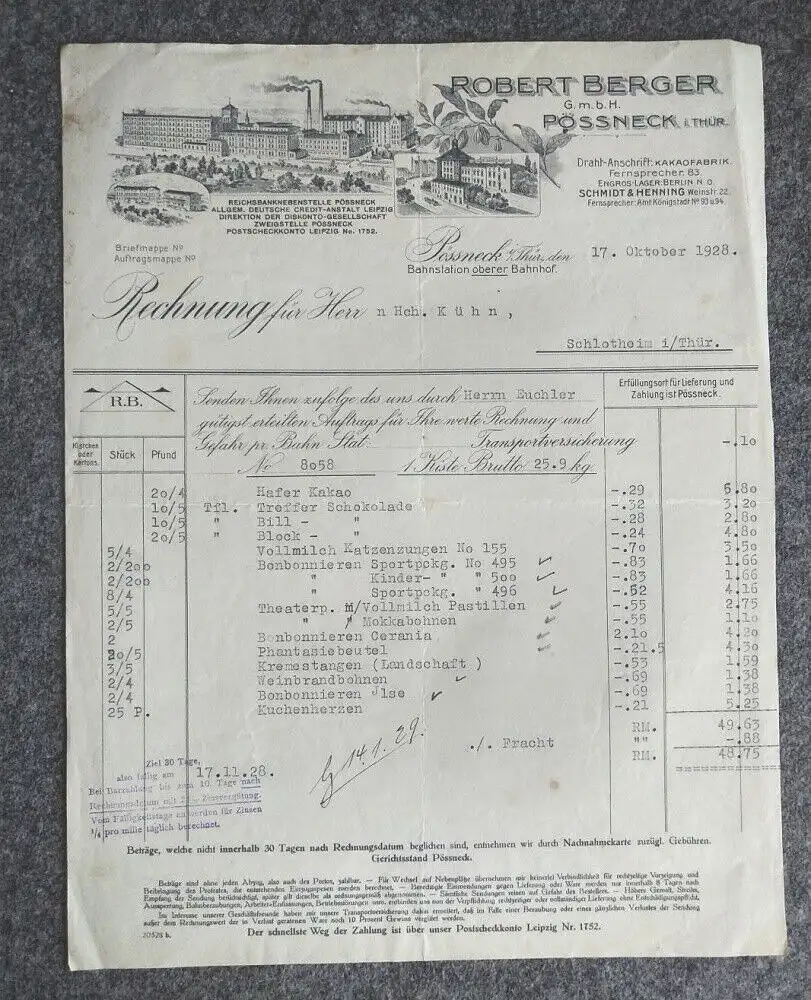 ROBERT BERGER
G.m.b.H.
PÖSSNECK i. THÜR.
Draht-Anschrift: KAKAOFABRIK.
Fernsprecher: 83.
ENGROS-LAGER: BERLIN N.O.
SCHMIDT & HENNING Weinstr. 22.
Fernsprecher: Amt Königstadt No 93 u. 94.
REICHSBANKNEBENSTELLE PÖSSNECK
ALLGEM. DEUTSCHE CREDIT-ANSTALT LEIPZIG
DIREKTION DER DISKONTO-GESELLSCHAFT
ZWEIGSTELLE PÖSSNECK
POSTSCHECKKONTO LEIPZIG No. 1752.
Briefmappe No
Auftragsmappe No
Pössneck i/Thür., den 17. Oktober 1928.
Bahnstation oberer Bahnhof.
Rechnung für Herr n Hch. Kühn,
Schlotheim i/Thür.
R.B.
Senden Ihnen zufolge des uns durch Herrn Euchler
gütigst erteilten Auftrags für Ihre werte Rechnung und
Gefahr pr. Bahn Stat. Transportversicherung -.10
No 8058 1 Kiste Brutto 25.9 kg.
Erfüllungsort für Lieferung und
Zahlung ist Pössneck.
Kistchen oder Kartons. Stück Pfund
20/4 Hafer Kakao -.29 5.80
10/5 Tfl. Treffer Schokolade -.32 3.20
10/5 " Bill - " -.28 2.80
20/5 " Block - " -.24 4.80
5/4 Vollmilch Katzenzungen No 155 -.70 3.50
2/200 Bonbonnieren Sportpckg. No 495 -.83 1.66
2/200 " Kinder- " " 500 -.83 1.66
8/4 " Sportpckg. " 496 -.52 4.16
5/5 Theaterp. m/Vollmilch Pastillen -.55 2.75
2/5 " / Mokkabohnen -.55 1.10
2 Bonbonnieren Cerania 2.10 4.20
20/5 Phantasiebeutel -.21.5 4.30
3/5 Kremestangen (Landschaft ) -.53 1.59
2/4 Weinbrandbohnen -.69 1.38
2/4 Bonbonnieren Jlse -.69 1.38
25 P. Kuchenherzen -.21 5.25
RM. 49.63
./. Fracht "" -.88
RM. 48.75
14.1.29.
Ziel 30 Tage,
also fällig am 17.11.28.
Bei Barzahlung bis zum 10. Tage nach
Rechnungsdatum mit Zinsvergütung.
Vom Fälligkeitstage an werden für Zinsen
pro mille täglich berechnet.
Beträge, welche nicht innerhalb 30 Tagen nach Rechnungsdatum beglichen sind, entnehmen wir durch Nachnahmekarte zuzügl. Gebühren.
Gerichtsstand Pössneck.
Beträge sind ohne jeden Abzug, also auch des Portos, zahlbar. — Für Wechsel auf Nebenplätze übernehmen wir keinerlei Verbindlichkeit für rechtzeitige Vorzeigung und
Beibringung des Protestes, die entstehenden Einzugsspesen werden berechnet. — Berechtigte Einwendungen gegen Lieferung oder Ware werden nur innerhalb 8 Tagen nach
Empfang der Sendung berücksichtigt, später gilt dieselbe als ordnungsgemäß abgenommen. — Sämtliche Sendungen reisen auf Gefahr des Bestellers. — Höhere Gewalt, Streiks,
Aussperrung, Bahnberaubungen, Arbeiter-Entlassungen, Betriebsstörungen usw. entbinden uns von der Verpflichtung rechtzeitiger oder vollständiger Lieferung ohne Entschädigungspflicht.
Im Interesse unserer Geschäftsfreunde haben wir unsere Transportversicherung dahin erweitert, daß im Falle einer Beraubung oder eines gänzlichen Verlustes der Sendung
außer dem Rechnungswert der in Verlust geratenen Ware noch 10 Prozent Gewinn vergütet werden.
20528 b. Der schnellste Weg der Zahlung ist über unser Postscheckkonto Leipzig Nr. 1752.